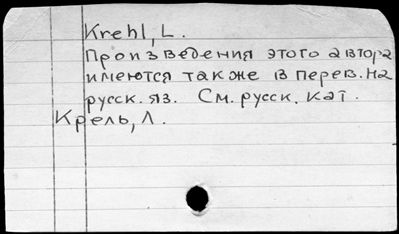 Krehl, L.
Произведения этого автора
имеются также в перев. на
русск. яз. См. русск. кат.
Крель, Л.